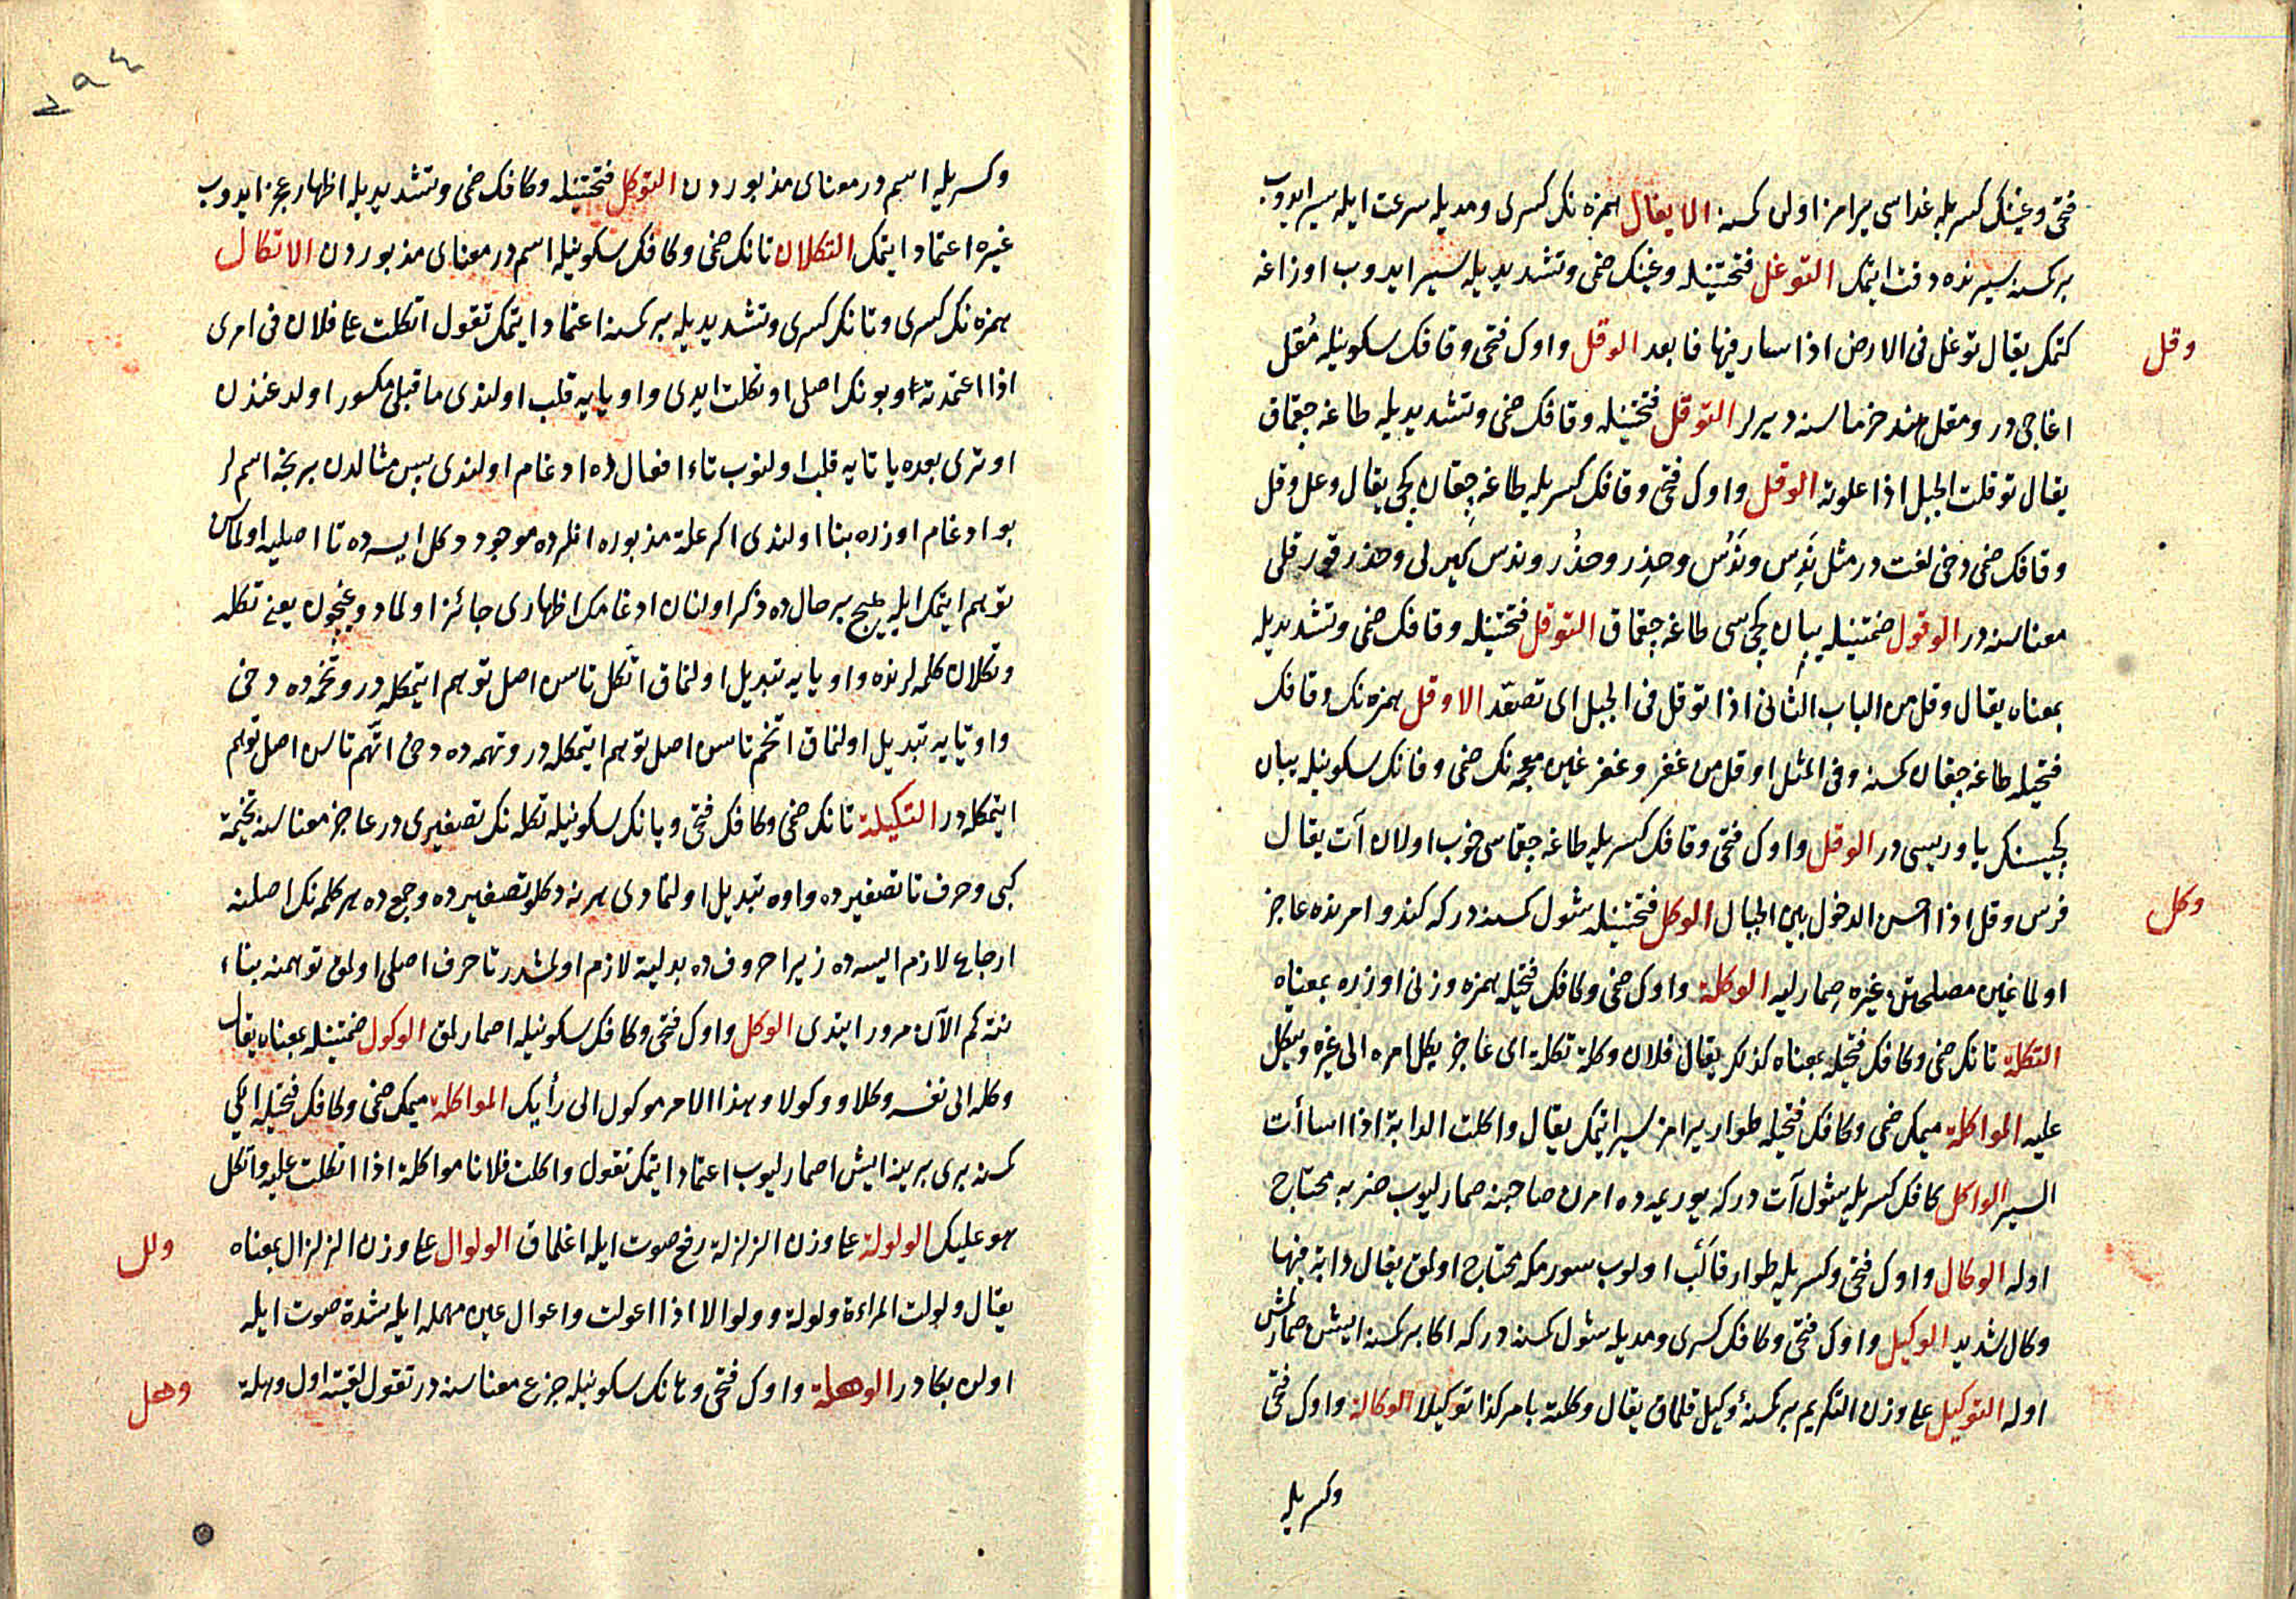 فتحى وغينك كسريله غداسى يرامز اولن كمسنه الايغال همزه نك كسرى ومديله سرعت ايله سير ايدوب
بر كمسنه سيرنده دقت ايتمك التوغل فتحتينله وغينك ضمى وتشديديله سير ايدوب اوزاغه
وقل
كتمك يقال توغل فى الارض اذا سار فيها فابعد الوقل واوك فتحى وقافك سكونيله مُقل
اغاجى در ومقل هند خرماسنه ديرلر التوقل فتحتينله وقافك ضمى وتشديديله طاغه چقماق
يقال توقلت الجبل اذا علوته الوقل واوك فتحى وقافك كسريله طاغه چقان كچى يقال وعل وقل
وقافك ضمى دخى لغت در مثل نَدِس ونَدُس وحذِر وحذُر وندس كبى لى وحذر قورقلى
معناسنه در الوقول ضمتينله يبان كچىسى طاغه چقماق التوقل فتحتينله وقافك ضمى وتشديديله
بمعناه يقال وقل من الباب الثانى اذا توقل فى الجبل اى تصعّد الاوقل همزه نك وقافك
فتحيله طاغه چقان كمسنه وفى المثل اوقل من غفر وغفر غين معجمه نك ضمى وفانك سكونيله يبان
كچيسنك ياوريسى در الوقل واوك فتحى وقافك كسريله طاغه چقماسى خوب اولان آت يقال
وكل
فرس وقل اذا احسن الدخول بين الجبال الوكل فتحتينله شول كمسنه دركه كندو امرنده عاجز
اولماغين مصلحتنى غيره اصمارليه الوكلة واوك ضمى وكافك فتحيله همزه وزنى اوزره بمعناه
التكلة تانك ضمى وكافك فتحيله بمعناه كذلك يقال فلان وكلة تكلة اى عاجز يكل امره الى غيره ويتكل
عليه المواكلة ميمك ضمى وكافك فتحيله طوار يرامز سير ايتمك يقال واكلت الدابة اذا اساأت
السير الواكل كافك كسريله شول آت دركه يوريمده امرن صاحبنه اصمارليوب ضربه محتاج
اوله الوكال واوك فتحى وكسريله طوار اولوب سورمكه محتاج اولمق يقال دابة فيها
وكال شديد الوكيل واوك فتحى وكافك كسرى ومديله شول كمسنه دركه اكا بر كمسنه ايشن اصمارلمش
اوله التوكيل على وزن التكريم بر كمسنه ى وكيل قلماق يقال وكلته بامر كذا توكيلا الوكالة واوك فتحى
وكسريله
٧٩٤
وكسريله اسم در معناى مذبوردن التوكل فتحتينله وكافك ضمى وتشديديله اظهار عجز ايدوب
غيره اعتماد ايتمك التكلان تانك ضمى وكافك سكونيله اسم در معناى مذبوردن الاتكال
همزه نك كسرى وتانك كسرى وتشديديله بر كمسنه اعتماد ايتمك تقول اتكلت على فلان فى امرى
اذا اعتمدته وبونك اصلى اوتكلت ايدى واو يايه قلب اولندى ماقبلى مكسور اولدغندن
اوترى بعده يا تايه قلب اولنوب تاء افتعال ده ادغام اولندى پس مثالدن بر نجه اسملر
بو ادغام اوزره بنا اولندى اكر علت مذبوره انلرده موجود دكل ايسه ده تا اصليه اولماسن
توهم ايتمك ايله هيچ بر حال ده ذكر اولنان ادغامك اظهارى جائز اولمادوغيچون يعنى تكله
وتكلان كلمه لرنده واو يايه تبديل اولنماق اتّكل تاسن اصل توهم ايتمكله در وتخمه ده دخى
واو تايه تبديل اولنماق اتّخم تاسن اصل توهم ايتمكله در وتهمه ده دخى اتّهم تاسن اصل توهم
ايتمكله در التكيلة تانك ضمى وكافك فتحى ويانك سكونيله تكله نك تصغيرى در عاجز معناسنه تخيمة
كبى وحرف تا تصغيرده واوه تبديل اولنمادى هر نه دكلو تصغيرده وجمع ده هر كلمه نك اصلنه
ارجاع لازم ايسه ده زيرا حروف ده بدليت لازم اولمشدر تا حرف اصلى اولمق توهمنه بناء
نته كم الآن مرور ايتدى الوكل واوك فتحى وكافك سكونيله اصمارلمق الوكول ضمتينله بمعناه يقال
وكله الى نفسه وكلا ووكولا وهذا الامر موكول الى رأيك المواكلة ميمك ضمى وكافك فتحيله ايكى
كمسنه برى برينه ايش اصمارليوب اعتماد ايتمك تقول واكلت فلانا مواكلة اذا اتكلت عليه واتكل
ولل
هو عليك الولولة على وزن الزلزلة رفع صوت ايله اغلماق الولوال على وزن الزلزال بمعناه
يقال ولولت المراءة ولولة وولوالا اذا اعولت واعوال عين مهمله ايله شدة صوت ايله
وهل
اولان بكادر الوهلة واوك فتحى وهانك سكونيله جزع معناسنه در تقول لقيته اول وهلة